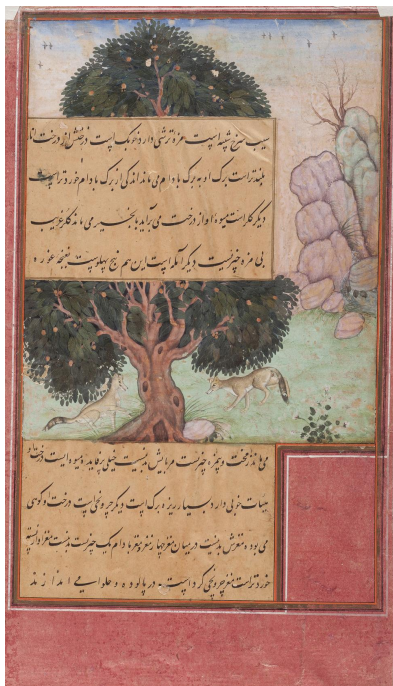 سرخ شبیه است مزه ترشی دارد خوبک است درختش از درخت انار
بلندتر است برگ او به برگ بادام می ماند اندکی از برگ بادام خوردتر است
دیگر گلر است میوه او از درخت می برآید بانجیر می ماند گلر غریب
بی مزه چیزیست دیگر آمله است این هم پنج پهلوست بغنچه غوزه
می ماند زمخت و بیمزه چیزیست مربایش بد نیست خیلی پرفایده میوه ایست درخت او
هیات خوبی دارد بسیار ریزه برگ است دیگر چرونجی است درخت او کوهی
می بوده مغزش بد نیست در میان مغز چهار مغز و مغز بادام یک چیزیست بد نیست مغز او از پسته
خوردتر است مغز چرونجی گرد است در پالوده و حلوا می اندازند